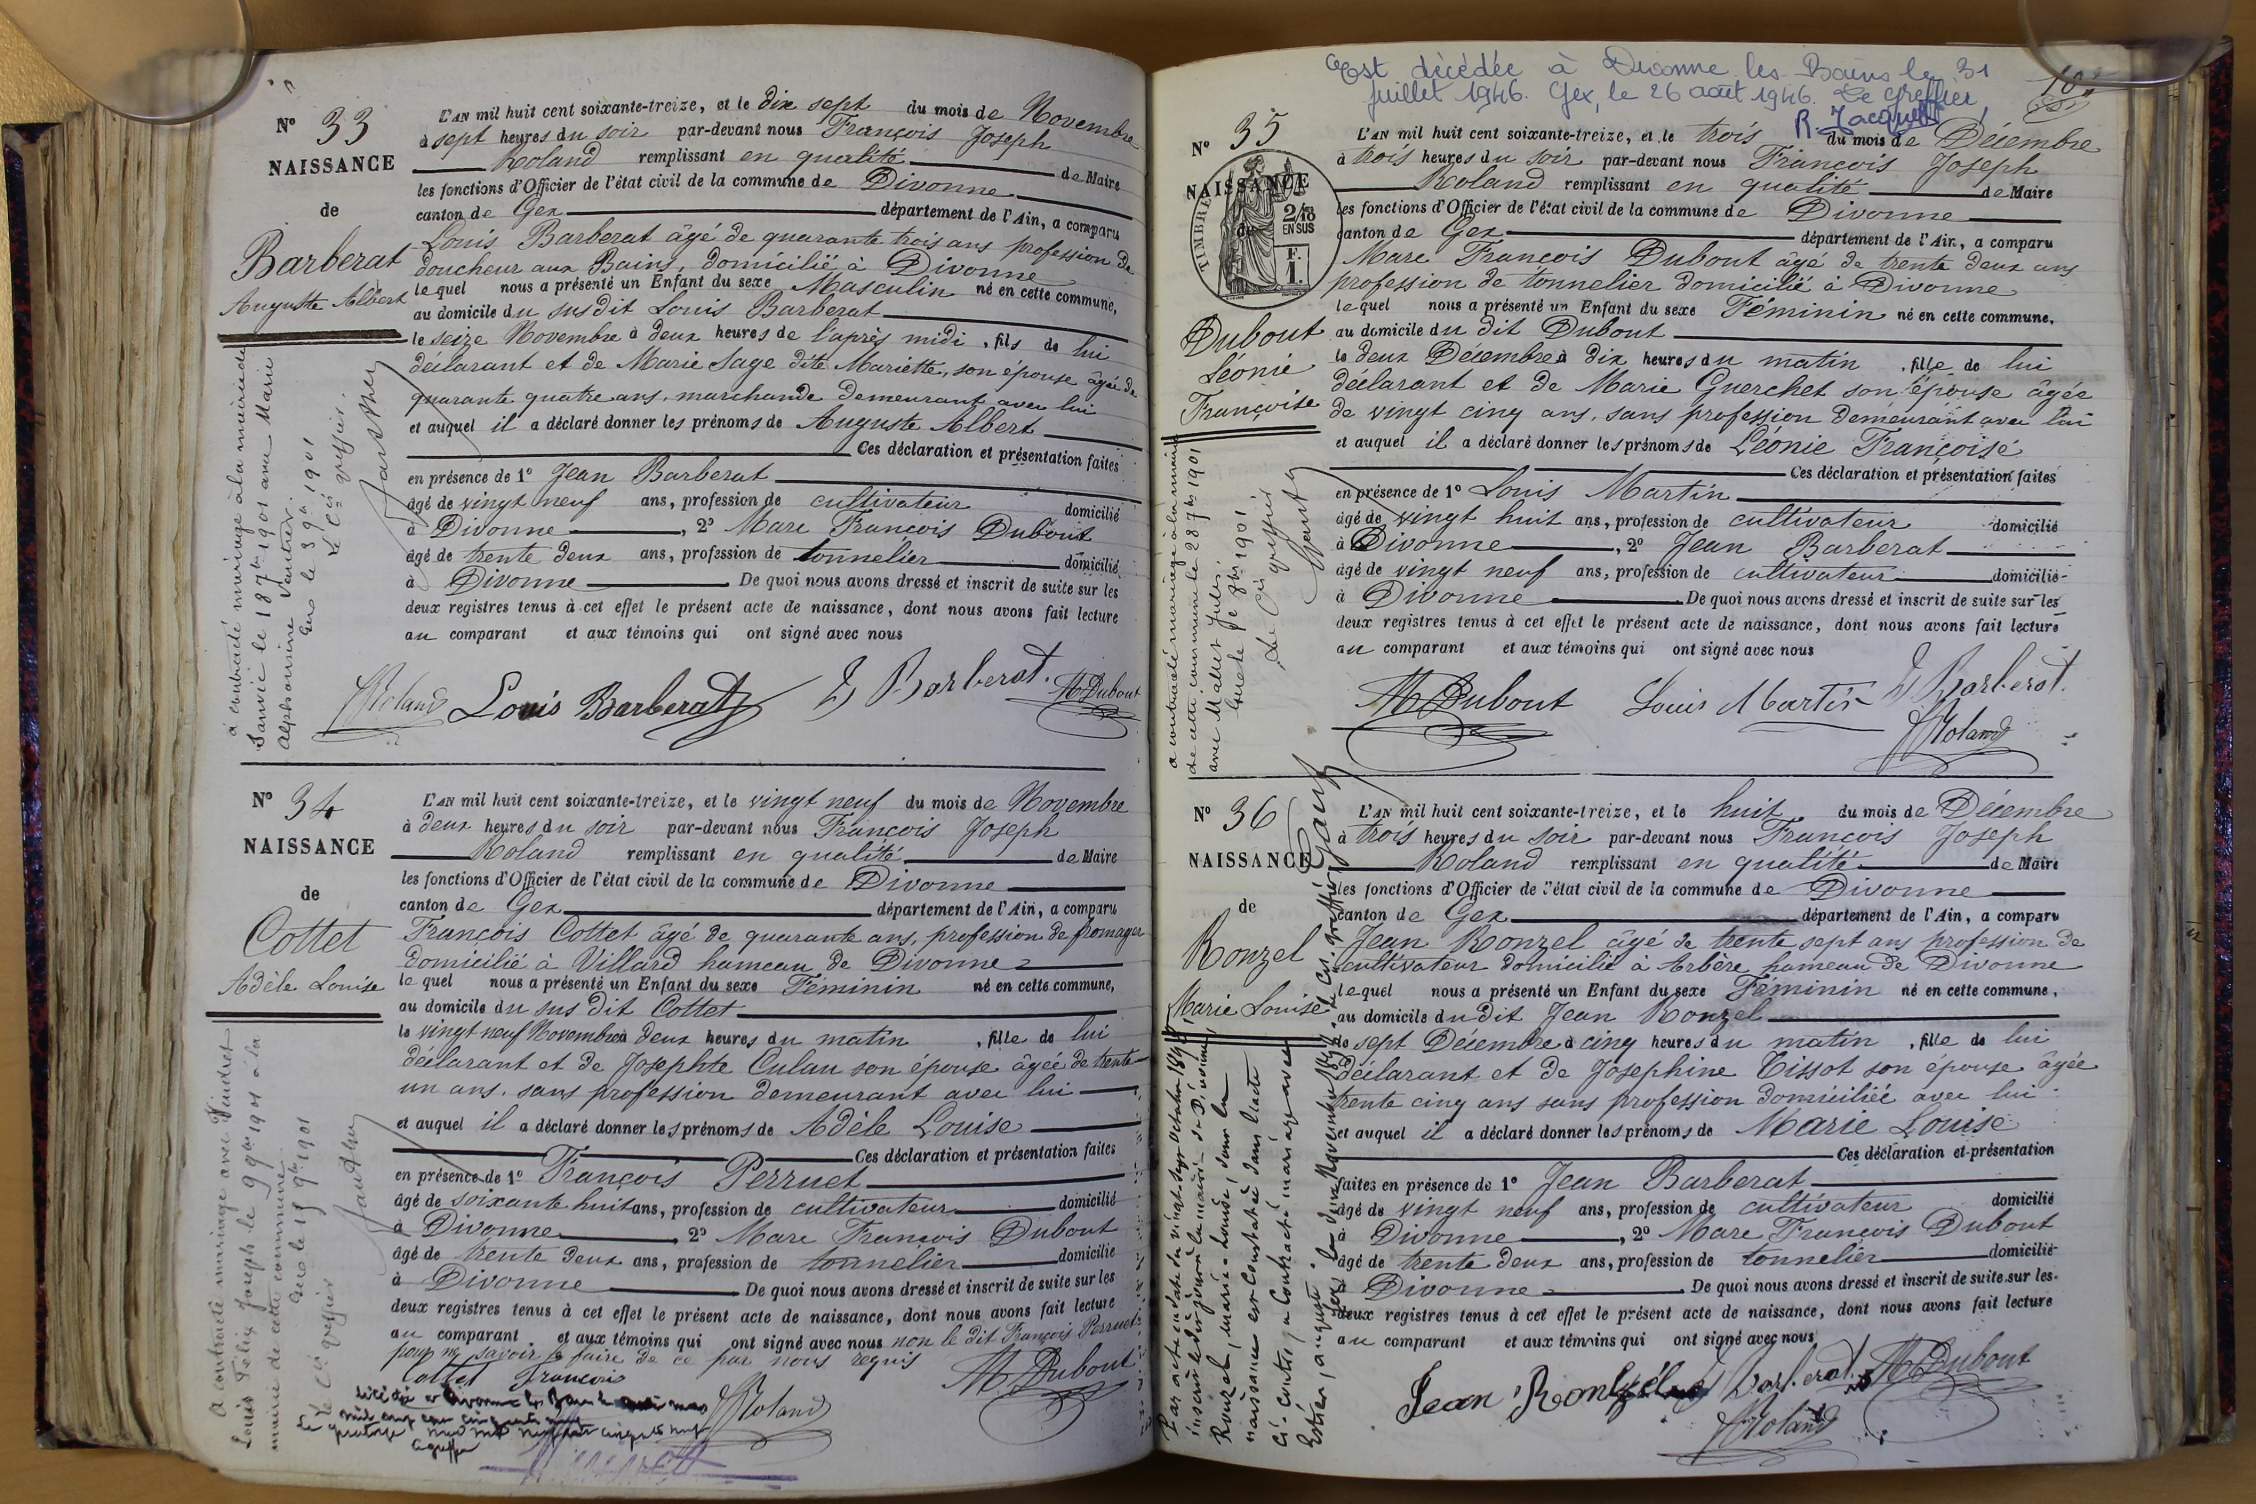 N° 33
NAISSANCE
de
Barberat
Auguste Albert
L'AN mil huit cent soixante-treize, et le dix sept du mois de Novembre
à sept heures du soir par-devant nous François Joseph
Roland remplissant en qualité de Maire
les fonctions d'Officier de l'état civil de la commune de Divonne
canton de Gex département de l'Ain, a comparu
Louis Barberat âgé de quarante trois ans profession de
doucheur aux Bains, domicilié à Divonne
lequel nous a présenté un Enfant du sexe Masculin né en cette commune,
au domicile du susdit Louis Barberat
le seize Novembre à deux heures de l'après midi, fils de lui
déclarant et de Marie Sage dite Mariette, son épouse âgée de
quarante quatre ans, marchande demeurant avec lui
et auquel il a déclaré donner les prénoms de Auguste Albert
Ces déclaration et présentation faites
en présence de 1° Jean Barberat
âgé de vingt neuf ans, profession de cultivateur domicilié
à Divonne, 2° Marc François Dubout
âgé de trente deux ans, profession de tonnelier domicilié
à Divonne De quoi nous avons dressé et inscrit de suite sur les
deux registres tenus à cet effet le présent acte de naissance, dont nous avons fait lecture
au comparant et aux témoins qui ont signé avec nous
JRoland Louis Barberat J Barberat. M Dubout
a contracté mariage à la mairie de
Sauvic le 18 7bre 1901 avec Marie
Alphonsine Vautier.
Gex le 3 9bre 1901
Le Cis greffier.
N° 34
NAISSANCE
de
Cottet
Adèle Louise
L'AN mil huit cent soixante-treize, et le vingt neuf du mois de Novembre
à deux heures du soir par-devant nous François Joseph
Roland remplissant en qualité de Maire
les fonctions d'Officier de l'état civil de la commune de Divonne
canton de Gex département de l'Ain, a comparu
François Cottet âgé de quarante ans, profession de fromager
domicilié à Villard hameau de Divonne
lequel nous a présenté un Enfant du sexe Féminin né en cette commune,
au domicile du sus dit Cottet
le vingt neuf Novembre à deux heures du matin, fille de lui
déclarant et de Josephte Culau son épouse âgée de trente
un ans, sans profession demeurant avec lui
et auquel il a déclaré donner les prénoms de Adèle Louise
Ces déclaration et présentation faites
en présence de 1° François Perruet
âgé de soixante huit ans, profession de cultivateur domicilié
à Divonne 2° Marc François Dubout
âgé de trente deux ans, profession de tonnelier domicilié
à Divonne De quoi nous avons dressé et inscrit de suite sur les
deux registres tenus à cet effet le présent acte de naissance, dont nous avons fait lecture
au comparant et aux témoins qui ont signé avec nous non le dit François Perruet
pour ne savoir le faire de ce par nous requis
Cottet François M Dubout
JRoland
A contracté mariage avec Vindret
Louis Félix Joseph le 9 9bre 1901 à la
mairie de cette commune.
Gex le 15 9bre 1901
Le Cis greffier
Est décédée à Divonne les Bains le 31
juillet 1946. Gex, le 26 août 1946. Le Greffier,
R. Jacquet
N° 35
NAISSANCE
de
TIMBRE
2/10
EN SUS
F.
1.
Dubout
Léonie
Françoise
L'AN mil huit cent soixante-treize, et le trois du mois de Décembre
à trois heures du soir par-devant nous François Joseph
Roland remplissant en qualité de Maire
les fonctions d'Officier de l'état civil de la commune de Divonne
canton de Gex département de l'Ain, a comparu
Marc François Dubout âgé de trente deux ans
profession de tonnelier domicilié à Divonne
lequel nous a présenté un Enfant du sexe Féminin né en cette commune,
au domicile du dit Dubout
le deux Décembre à dix heures du matin, fille de lui
déclarant et de Marie Guerchet son épouse âgée
de vingt cinq ans, sans profession demeurant avec lui
et auquel il a déclaré donner les prénoms de Léonie Françoise
Ces déclaration et présentation faites
en présence de 1° Louis Martin
âgé de vingt huit ans, profession de cultivateur domicilié
à Divonne, 2° Jean Barberat
âgé de vingt neuf ans, profession de cultivateur domicilié
à Divonne De quoi nous avons dressé et inscrit de suite sur les
deux registres tenus à cet effet le présent acte de naissance, dont nous avons fait lecture
au comparant et aux témoins qui ont signé avec nous
M Dubout Louis Martin J Barberat.
JRoland
a contracté mariage à la mairie
de cette commune le 28 7bre 1901
avec Mallet Jules.
Le Cis greffier
N° 36
NAISSANCE
de
Ronzel
Marie Louise
L'AN mil huit cent soixante-treize, et le huit du mois de Décembre
à trois heures du soir par-devant nous François Joseph
Roland remplissant en qualité de Maire
les fonctions d'Officier de l'état civil de la commune de Divonne
canton de Gex département de l'Ain, a comparu
Jean Ronzel âgé de trente sept ans profession de
cultivateur domicilié à Arbère hameau de Divonne
lequel nous a présenté un Enfant du sexe Féminin né en cette commune,
au domicile du dit Jean Ronzel
le sept Décembre à cinq heures du matin, fille de lui
déclarant et de Josephine Tissot son épouse âgée
trente cinq ans sans profession domiciliée avec lui
et auquel il a déclaré donner les prénoms de Marie Louise
Ces déclaration et présentation
faites en présence de 1° Jean Barberat
âgé de vingt neuf ans, profession de cultivateur domicilié
à Divonne, 2° Marc François Dubout
âgé de trente deux ans, profession de tonnelier domicilié
à Divonne De quoi nous avons dressé et inscrit de suite sur les
deux registres tenus à cet effet le présent acte de naissance, dont nous avons fait lecture
au comparant et aux témoins qui ont signé avec nous
Jean Ronzel J Barberat. M Dubout
JRoland
Par acte en date du vingt-sept Octobre
inscrit le dit jour à la mairie de Divonne,
Ronzel, marie-Louise, dont la
naissance est constatée dans l'acte
ci-contre, a contracté mariage avec
Estier, auguste.